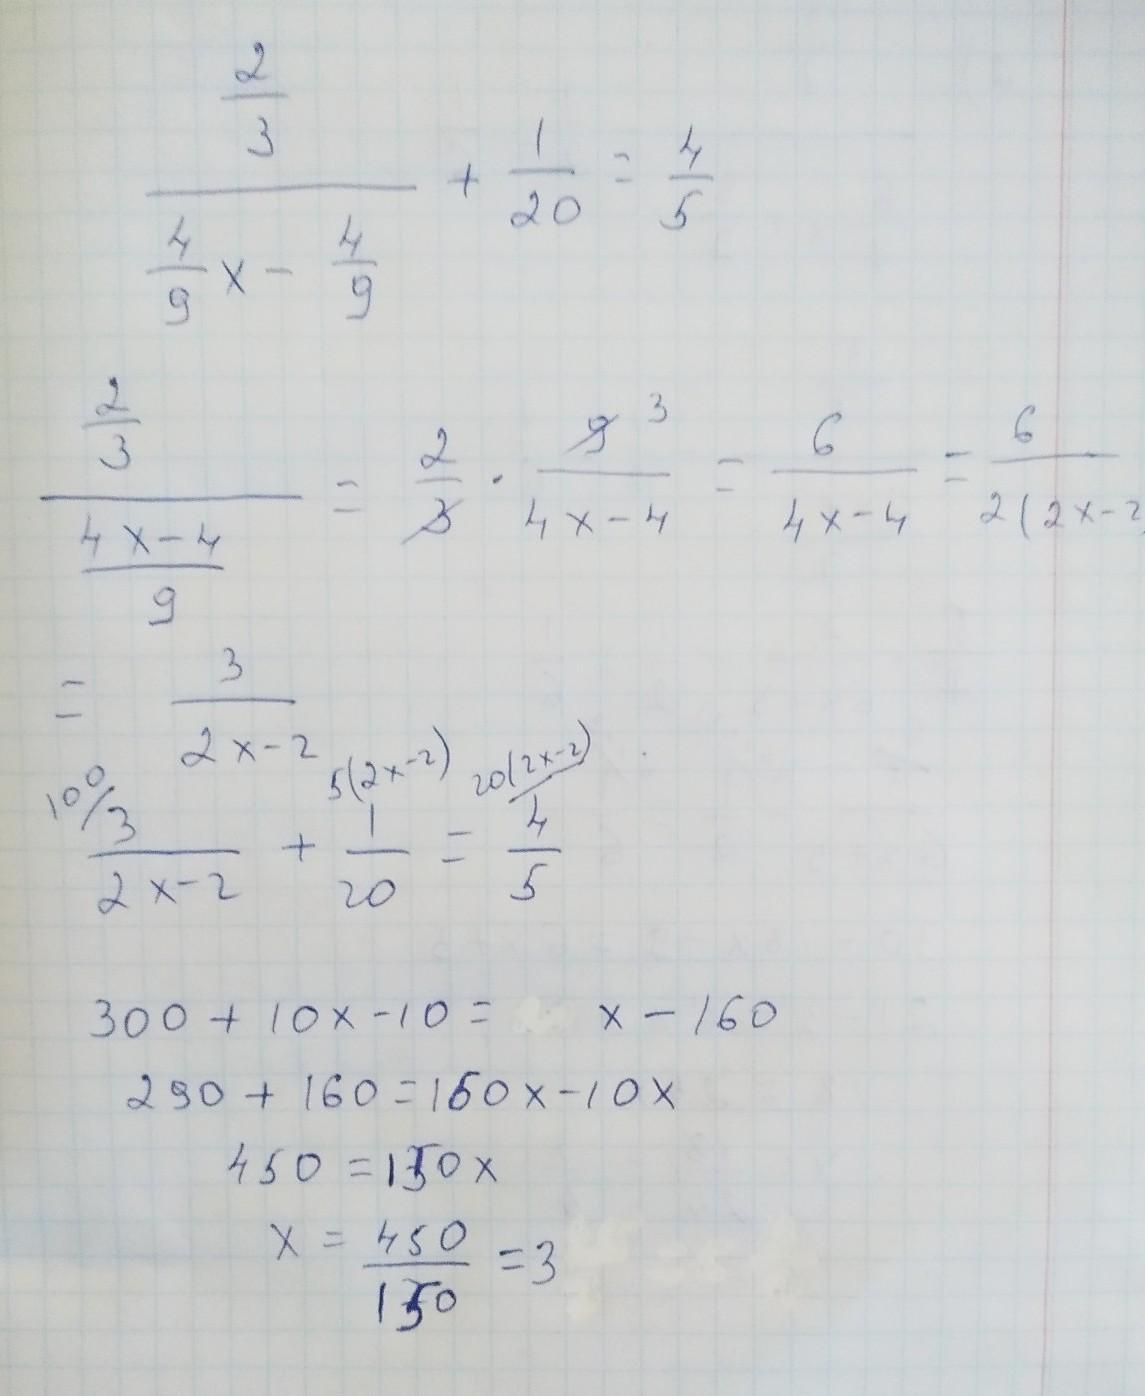 2/3 / (4/9 x - 4/9) + 1/20 = 4/5
2/3 / ((4x-4)/9) = 2/3 · 9/(4x-4) 3 = 6/(4x-4) = 6/(2(2x-2)
= 3/(2x-2)
100/ 5(2x-2) 20(2x-2)/
3/(2x-2) + 1/20 = 4/5
300 + 10x - 10 = x - 160
290 + 160 = 160x - 10x
450 = 150x
x = 450/150 = 3